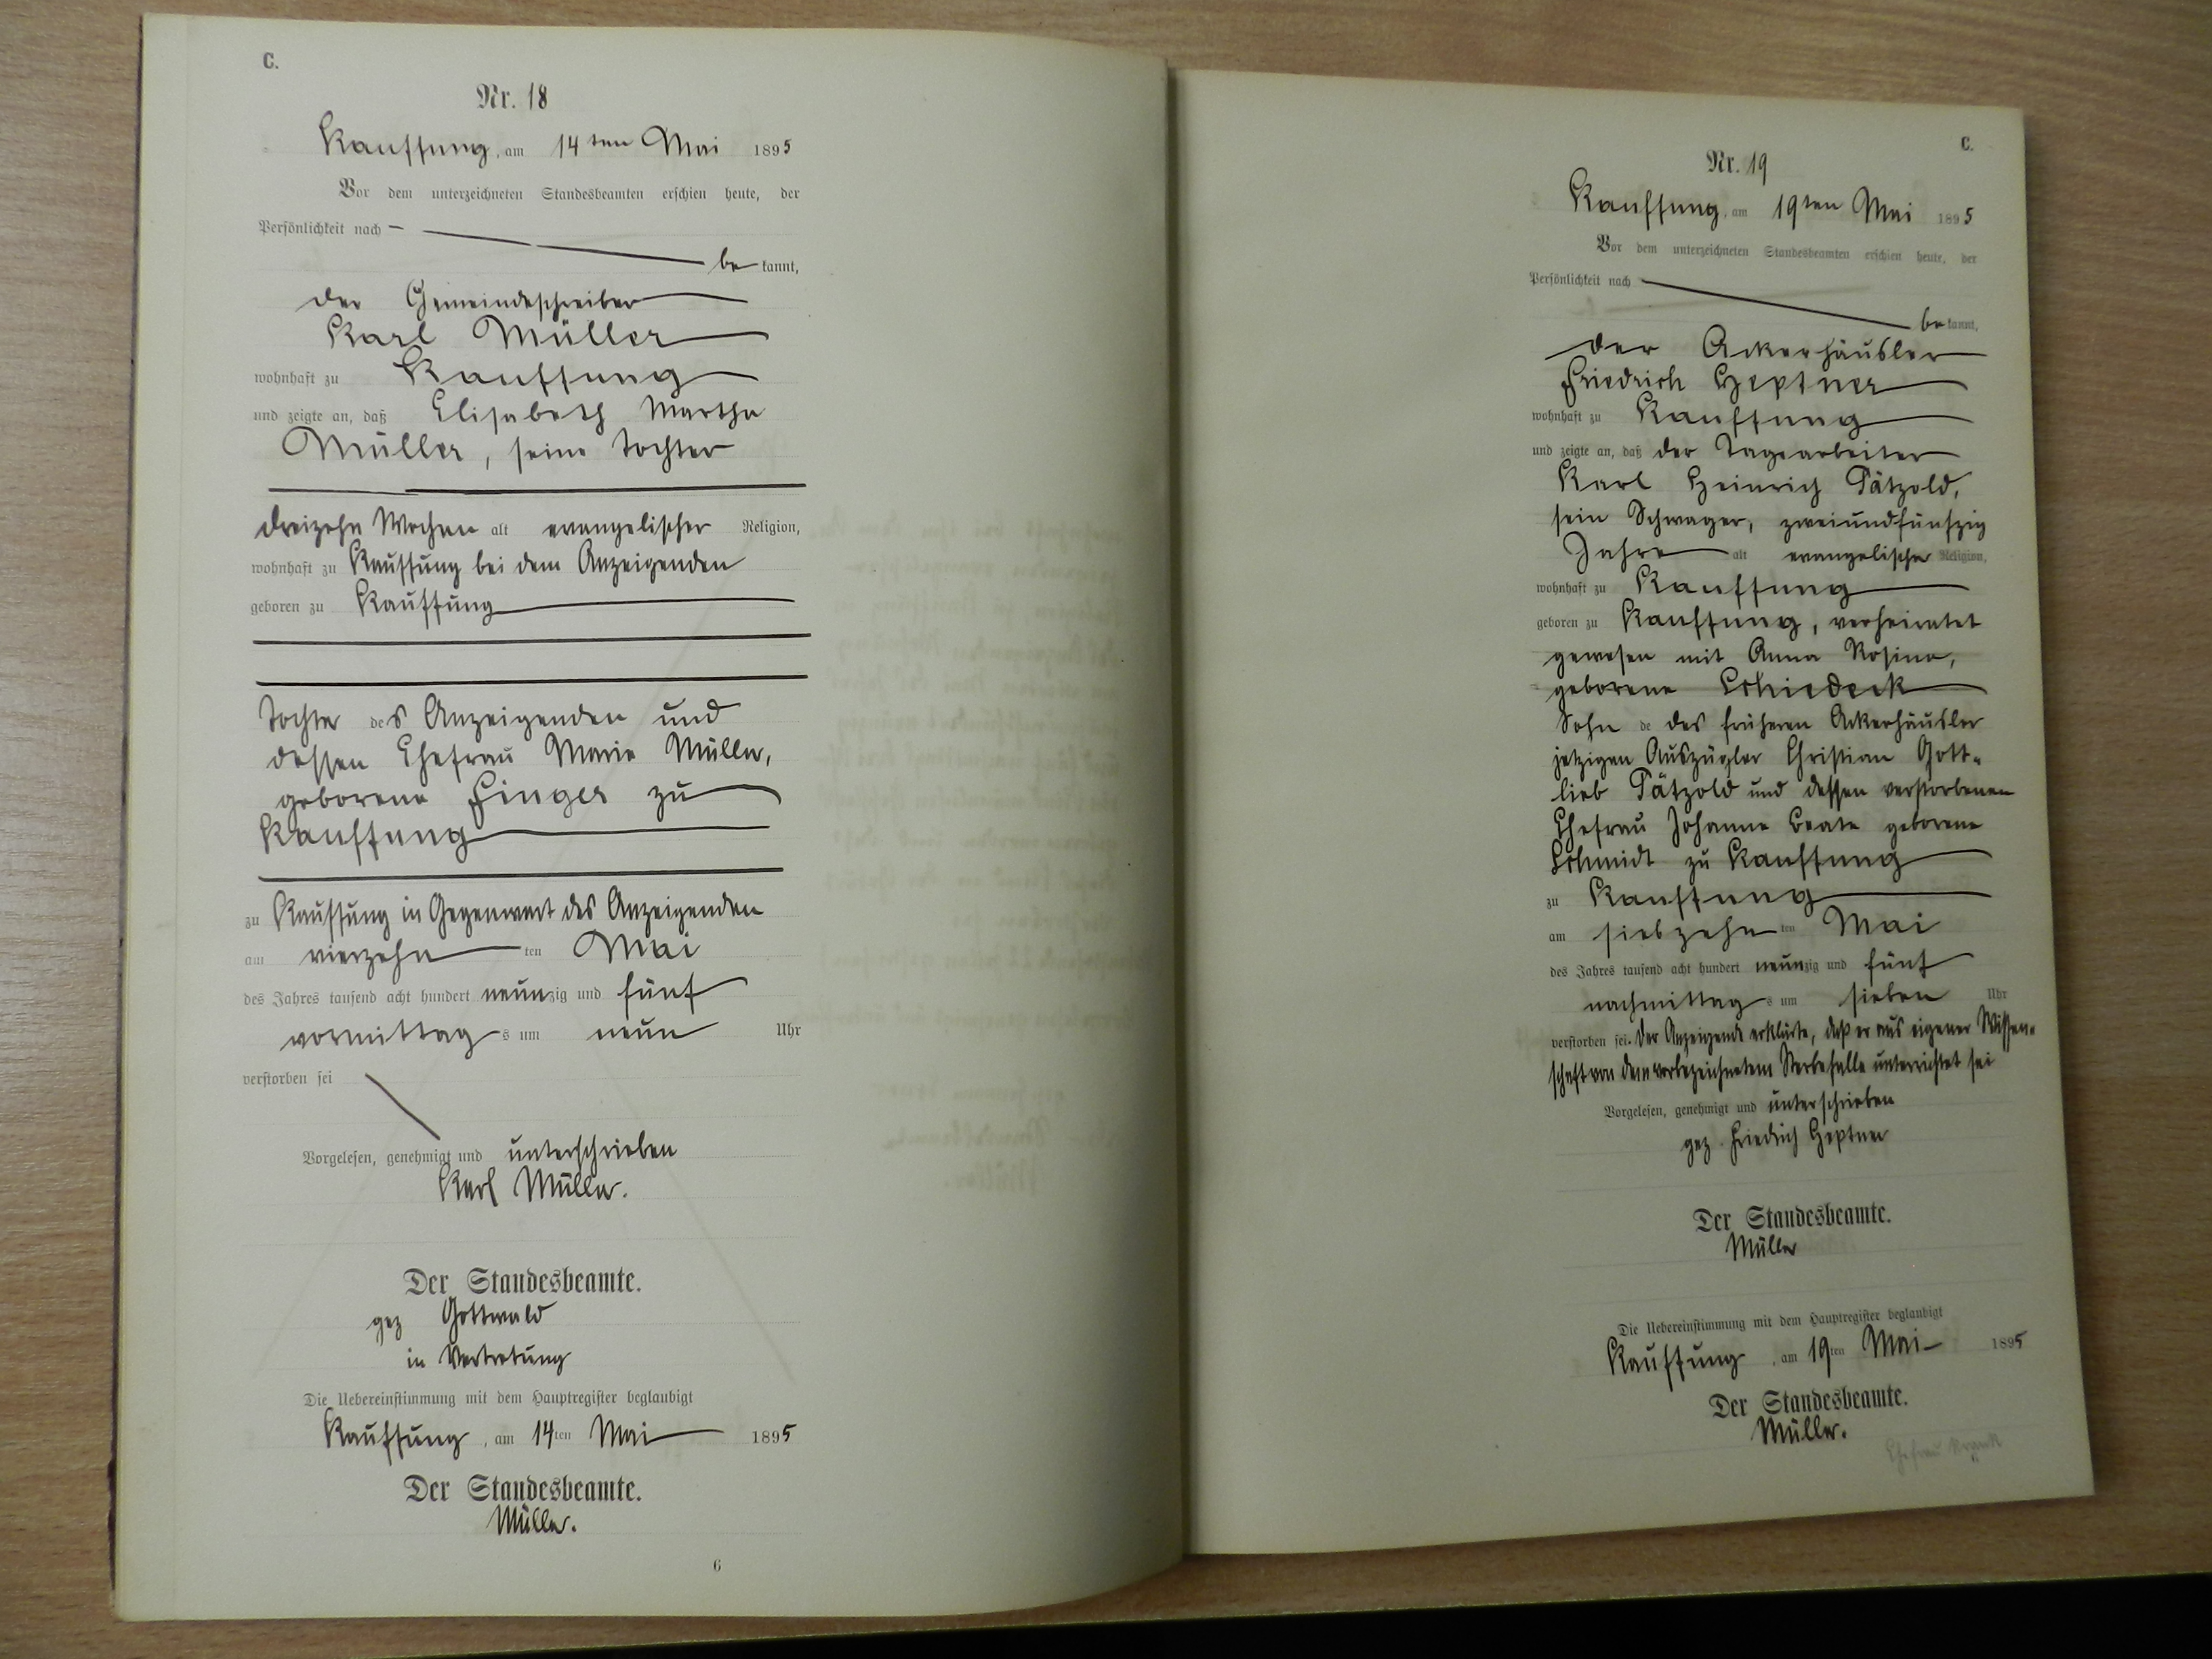 C.
Nr. 18
Kauffung, am 14ten Mai 1895
Vor dem unterzeichneten Standesbeamten erschien heute, der
Persönlichkeit nach
bekannt,
der Gemeindeschreiber
Karl Müller
wohnhaft zu Kauffung
und zeigte an, daß Elisabeth Martha
Müller, seine Tochter
dreizehn Wochen alt evangelischer Religion,
wohnhaft zu Kauffung bei dem Anzeigenden
geboren zu Kauffung
Tochter des Anzeigenden und
dessen Ehefrau Marie Müller,
geborene Finger zu
Kauffung
zu Kauffung in Gegenwart des Anzeigenden
am vierzehnten Mai
des Jahres tausend acht hundert neunzig und fünf
vormittags um neun Uhr
verstorben sei
Vorgelesen, genehmigt und unterschrieben
Karl Müller.
Der Standesbeamte.
gez Gottwald
in Vertretung
Die Uebereinstimmung mit dem Hauptregister beglaubigt
Kauffung, am 14ten Mai 1895
Der Standesbeamte.
Müller.
6
C.
Nr. 19
Kauffung, am 19ten Mai 1895
Vor dem unterzeichneten Standesbeamten erschien heute, der
Persönlichkeit nach
bekannt,
der Ackerhäusler
Friedrich Heptner
wohnhaft zu Kauffung
und zeigte an, daß der Tagearbeiter
Karl Heinrich Pätzold,
sein Schwager, zweiundfünfzig
Jahre alt evangelischer Religion,
wohnhaft zu Kauffung
geboren zu Kauffung, verheiratet
gewesen mit Anna Rosina,
geborene Schiedeck
Sohn de des früheren Ackerhäusler
jetzigen Auszügler Christian Gott-
lieb Pätzold und dessen verstorbenen
Ehefrau Johanne Beate geborene
Schmidt zu Kauffung
zu Kauffung
am siebzehnten Mai
des Jahres tausend acht hundert neunzig und fünf
nachmittags um sieben Uhr
verstorben sei. Der Anzeigende erklärte, daß er aus eigener Wissen-
schaft von dem vorbezeichnetem Sterbefalle unterrichtet sei
Vorgelesen, genehmigt und unterschrieben
gez. Friedrich Heptner
Der Standesbeamte.
Müller
Die Uebereinstimmung mit dem Hauptregister beglaubigt
Kauffung, am 19ten Mai 1895
Der Standesbeamte.
Müller.
Ehefrau krank